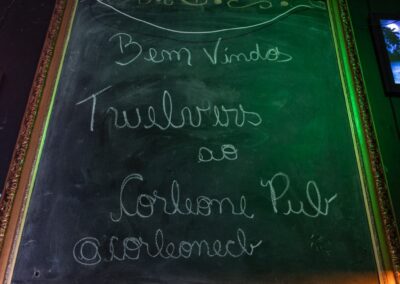 Bem Vindos
Truelvers
ao
Corleone Pub
@corleonecb